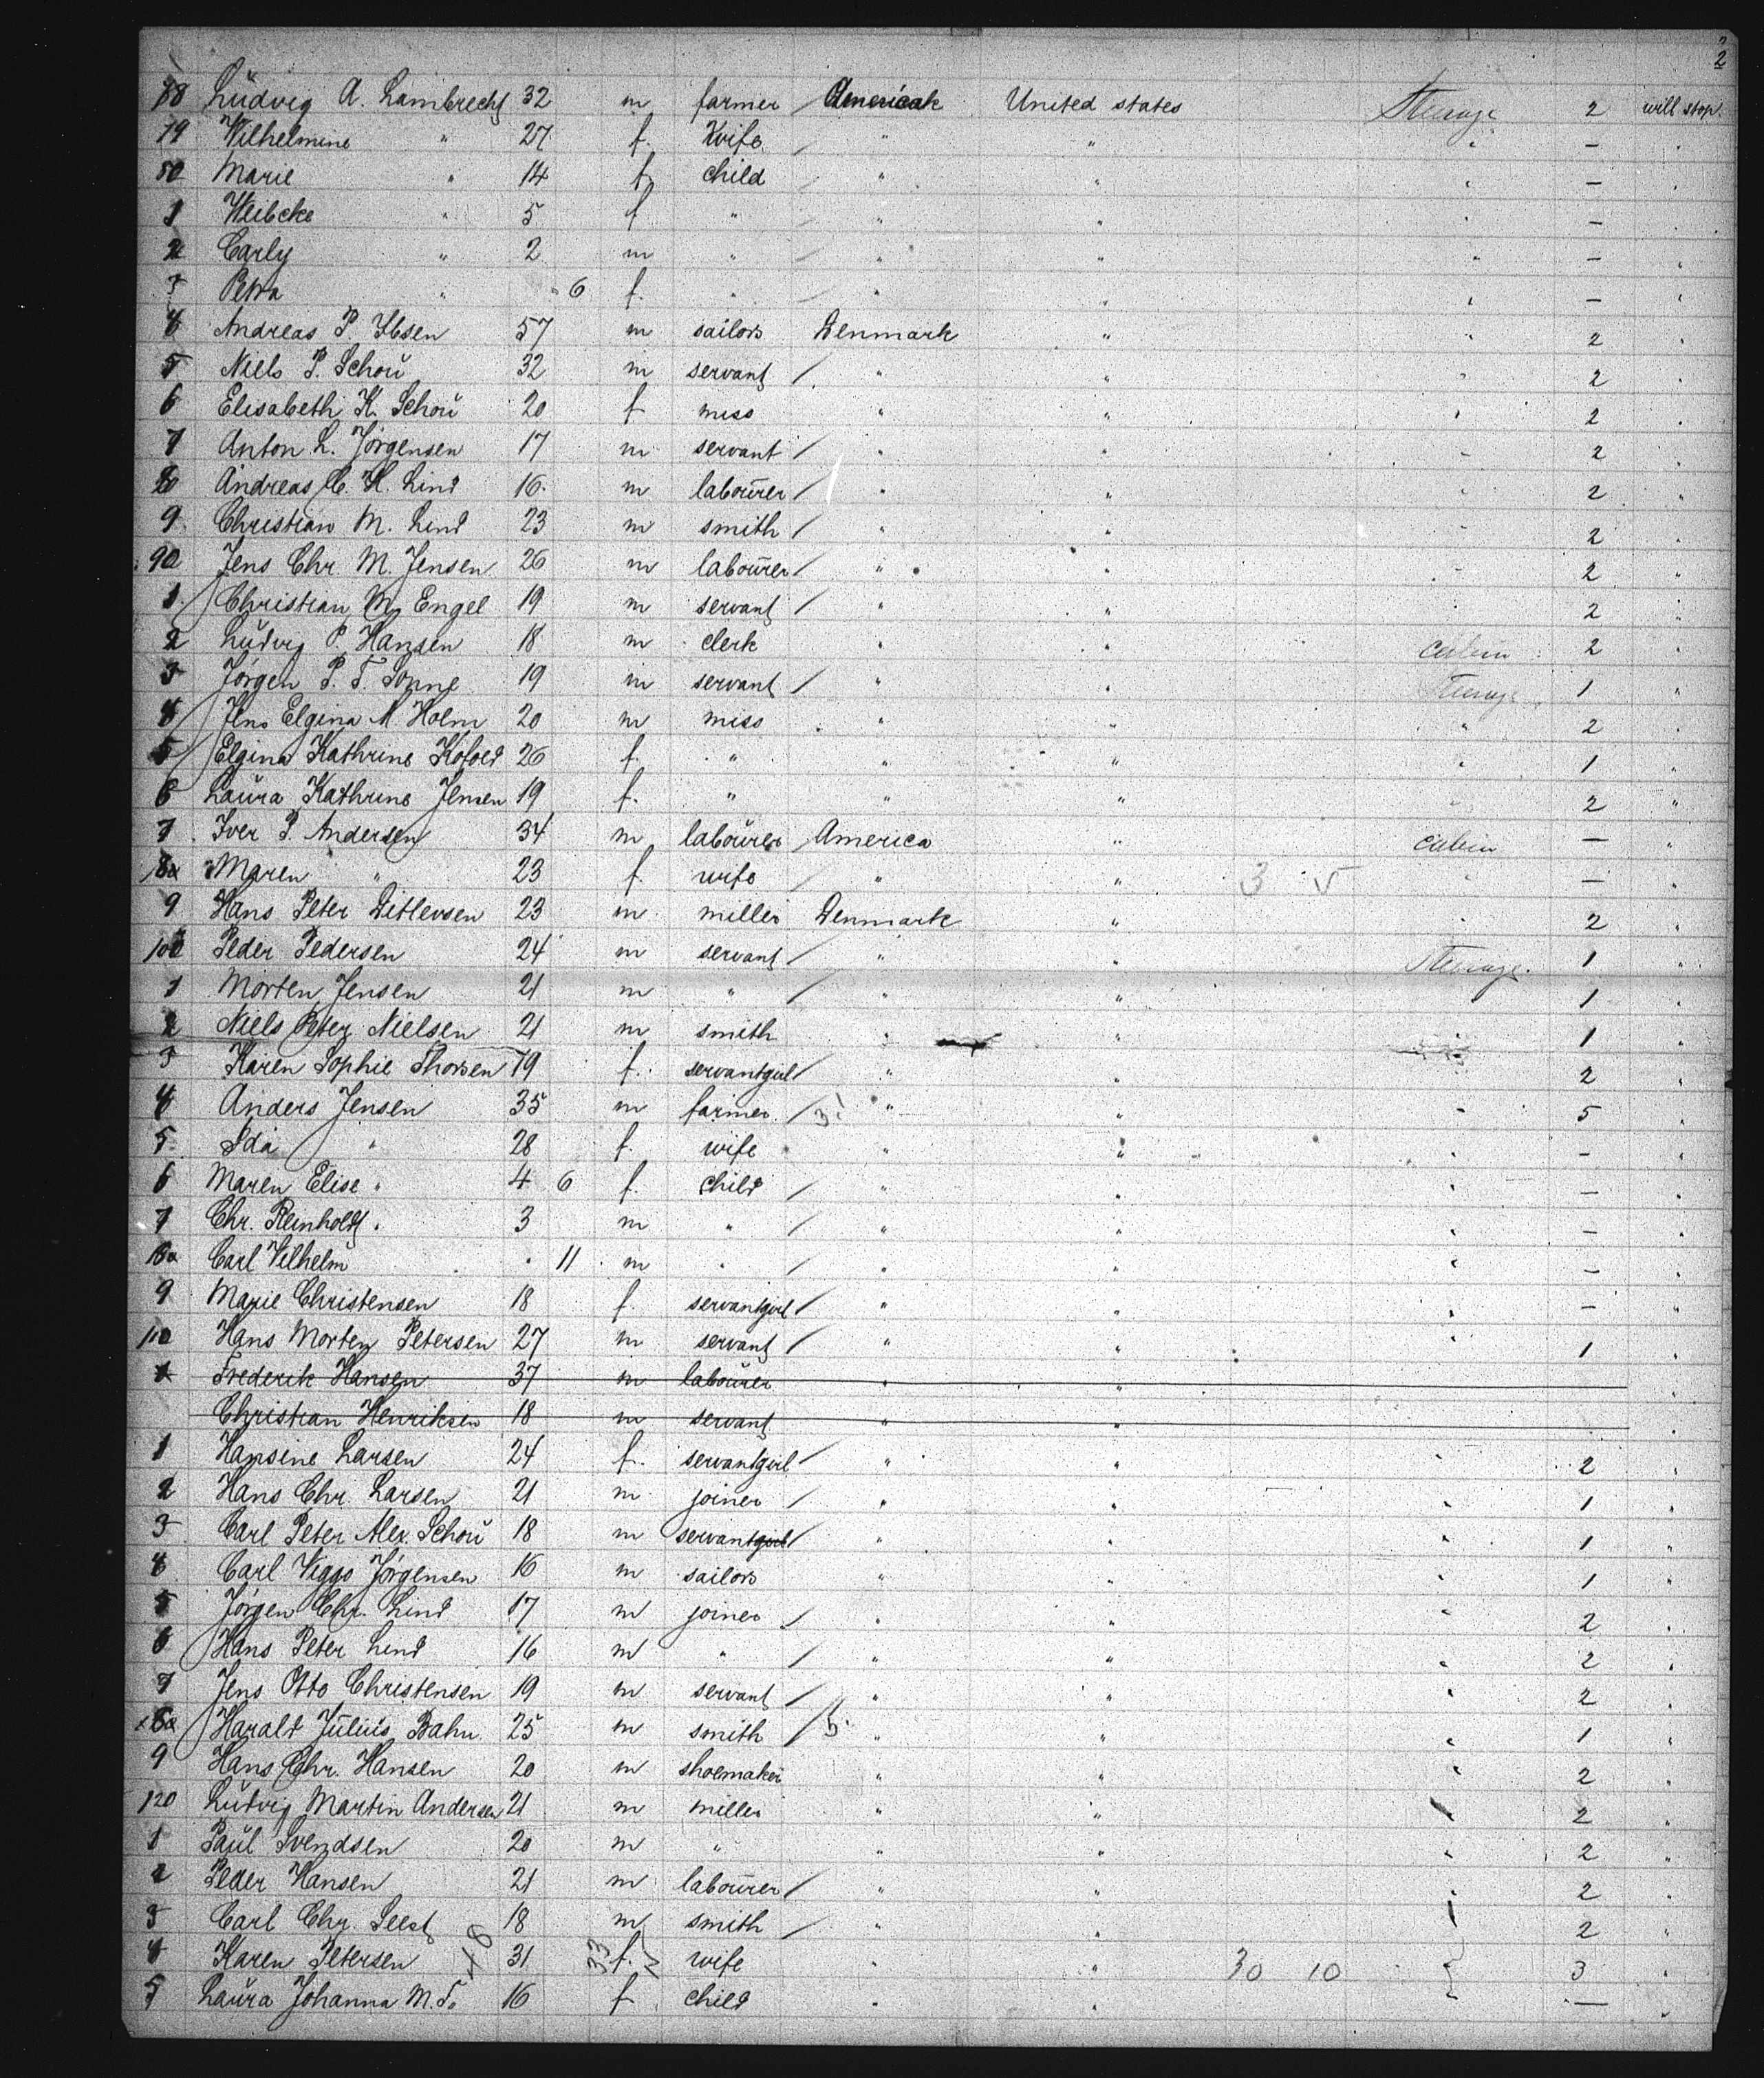 2
78 Lüdvig A. Lambrecht 32 m farmer / America United states Steerage 2 will stop.
79 Wilhelmine " 27 f. wife / " " " — "
80 Marie " 14 f. child / " " " — "
1 Wiibcke " 5 f " / " " " — "
2 Carly " 2 m " / " " " — "
3 Petra " " 6 f. " / " " " — "
4 Andreas P. Ibsen 57 m sailor Denmark " " 2 "
5 Niels P. Schoü 32 m servant / " " " 2 "
6 Elisabeth K. Schoü 20 f. miss " " " 2 "
7 Anton L. Jörgensen 17 m servant / " " " 2 "
8 Andreas C. H. Lind 16 m laboürer / " " " 2 "
9 Christian M. Lind 23 m smith / " " " 2 "
90 Jens Chr. M. Jensen 26 m laboürer / " " " 2 "
1 Christian M. Engel 19 m servant / " " " 2 "
2 Lüdvig P. Hansen 18 m clerk " " cabin 2 "
3 Jörgen P. F. Sonne 19 m servant / " " Steerage 1 "
4 Jens Elgina M. Holm 20 m miss " " " 2 "
5 Elgina Kathrine Kofoed 26 f. " " " " 1 "
6 Laüra Kathrine Jensen 19 f. " " " " 2 "
7 Iver P. Andersen 34 m laboürer / America " cabin — "
8 Maren " 23 f. wife / " " 3 V " — "
9 Hans Peter Ditlevsen 23 m miller Denmark " " 2 "
100 Peder Pedersen 24 m servant / " " Steerage. 1 "
1 Morten Jensen 21 m " / " " " 1 "
2 Niels Peter Nielsen 21 m smith " " " 1 "
3 Karen Sophie Thorsen 19 f. servantgirl / " " " 2 "
4 Anders Jensen 35 m farmer / " " " 5 "
5 Ida " 28 f. wife " " " — "
6 Maren Elise " 4 6 f. child / " " " — "
7 Chr. Reinholdt " 3 m " / " " " — "
8 Carl Vilhelm " 11 m " / " " " — "
9 Marie Christensen 18 f. servantgirl / " " " — "
110 Hans Morten Petersen 27 m servant / " " " 1 "
1 Frederik Hansen 37 m laboürer " " "
Christian Henriksen 18 m servant " " "
1 Hansine Larsen 24 f. servantgirl / " " " 2 "
2 Hans Chr. Larsen 21 m joiner / " " " 1 "
3 Carl Peter Alex. Schoü 18 m servantgirl / " " " 1 "
4 Carl Viggo Jörgensen 16 m sailor " " " 1 "
5 Jörgen Chr. Lind 17 m joiner / " " " 2 "
6 Hans Peter Lind 16 m " / " " " 2 "
7 Jens Otto Christensen 19 m servant / " " " 2 "
8 Harald Jülius Bahn 25 m smith / " " " 1 "
9 Hans Chr. Hansen 20 m shoemaker " " " 2 "
120 Lüdvig Martin Andersen 21 m miller " " " 2 "
1 Paül Svendsen 20 m " " " " 2 "
2 Peder Hansen 21 m laboürer / " " " 2 "
3 Carl Chr. Seest 18 m smith / " " " 2 "
4 Karen Petersen 31 f. wife " " 30 10 3 "
5 Laüra Johanna M. 16 f child " " — "